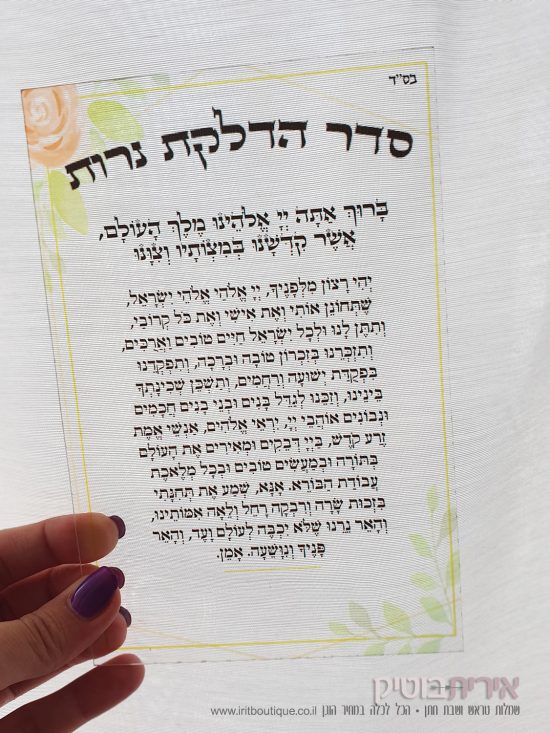 בס״ד
סדר הדלקת נרות
בָּרוּךְ אַתָּה יְיָ אֱלֹהֵינוּ מֶלֶךְ הָעוֹלָם,
אֲשֶׁר קִדְּשָׁנוּ בְּמִצְוֹתָיו וְצִוָּנוּ
יְהִי רָצוֹן מִלְּפָנֶיךָ, יְיָ אֱלֹהַי אֱלֹהֵי יִשְׂרָאֵל,
שֶׁתְּחוֹנֵן אוֹתִי וְאֶת אִישִׁי וְאֶת כֹּל קְרוֹבַי,
וְתִתֶּן לָנוּ וּלְכָל יִשְׂרָאֵל חַיִּים טוֹבִים וַאֲרֻכִּים,
וְתִזְכְּרֵנוּ בְּזִכְרוֹן טוֹבָה וּבְרָכָה, וְתִפְקְדֵנוּ
בִּפְקֻדַּת יְשׁוּעָה וְרַחֲמִים, וְתַשְׁכֵּן שְׁכִינָתְךָ
בֵּינֵינוּ, וְזַכֵּנוּ לְגַדֵּל בָּנִים וּבְנֵי בָנִים חֲכָמִים
וּנְבוֹנִים אוֹהֲבֵי יְיָ, יִרְאֵי אֱלֹהִים, אַנְשֵׁי אֱמֶת
זֶרַע קֹדֶשׁ, בַּיְיָ דְּבֵקִים וּמְאִירִים אֶת הָעוֹלָם
בְּתוֹרָה וּבְמַעֲשִׂים טוֹבִים וּבְכָל מְלֶאכֶת
עֲבוֹדַת הַבּוֹרֵא. אָנָּא, שְׁמַע אֶת תְּחִנָּתִי
בִּזְכוּת שָׂרָה וְרִבְקָה רָחֵל וְלֵאָה אִמּוֹתֵינוּ,
וְהָאֵר נֵרֵנוּ שֶׁלֹּא יִכְבֶּה לְעוֹלָם וָעֶד, וְהָאֵר
פָּנֶיךָ וְנִוָּשֵׁעָה. אָמֵן.
איריתבוטיק
שמלות טראש ושבת חתן • הכל לכלה במחיר הוגן www.iritboutique.co.il